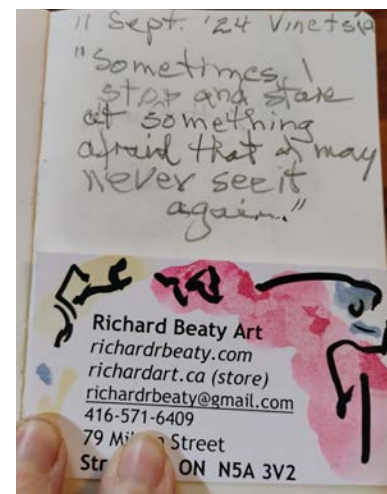 11 Sept. '24 Vinetsia
"Sometimes, I
stop and stare
at something
afraid that I may
never see it
again."
Richard Beaty Art
richardrbeaty.com
richardart.ca (store)
richardrbeaty@gmail.com
416-571-6409
79 Street
ON N5A 3V2